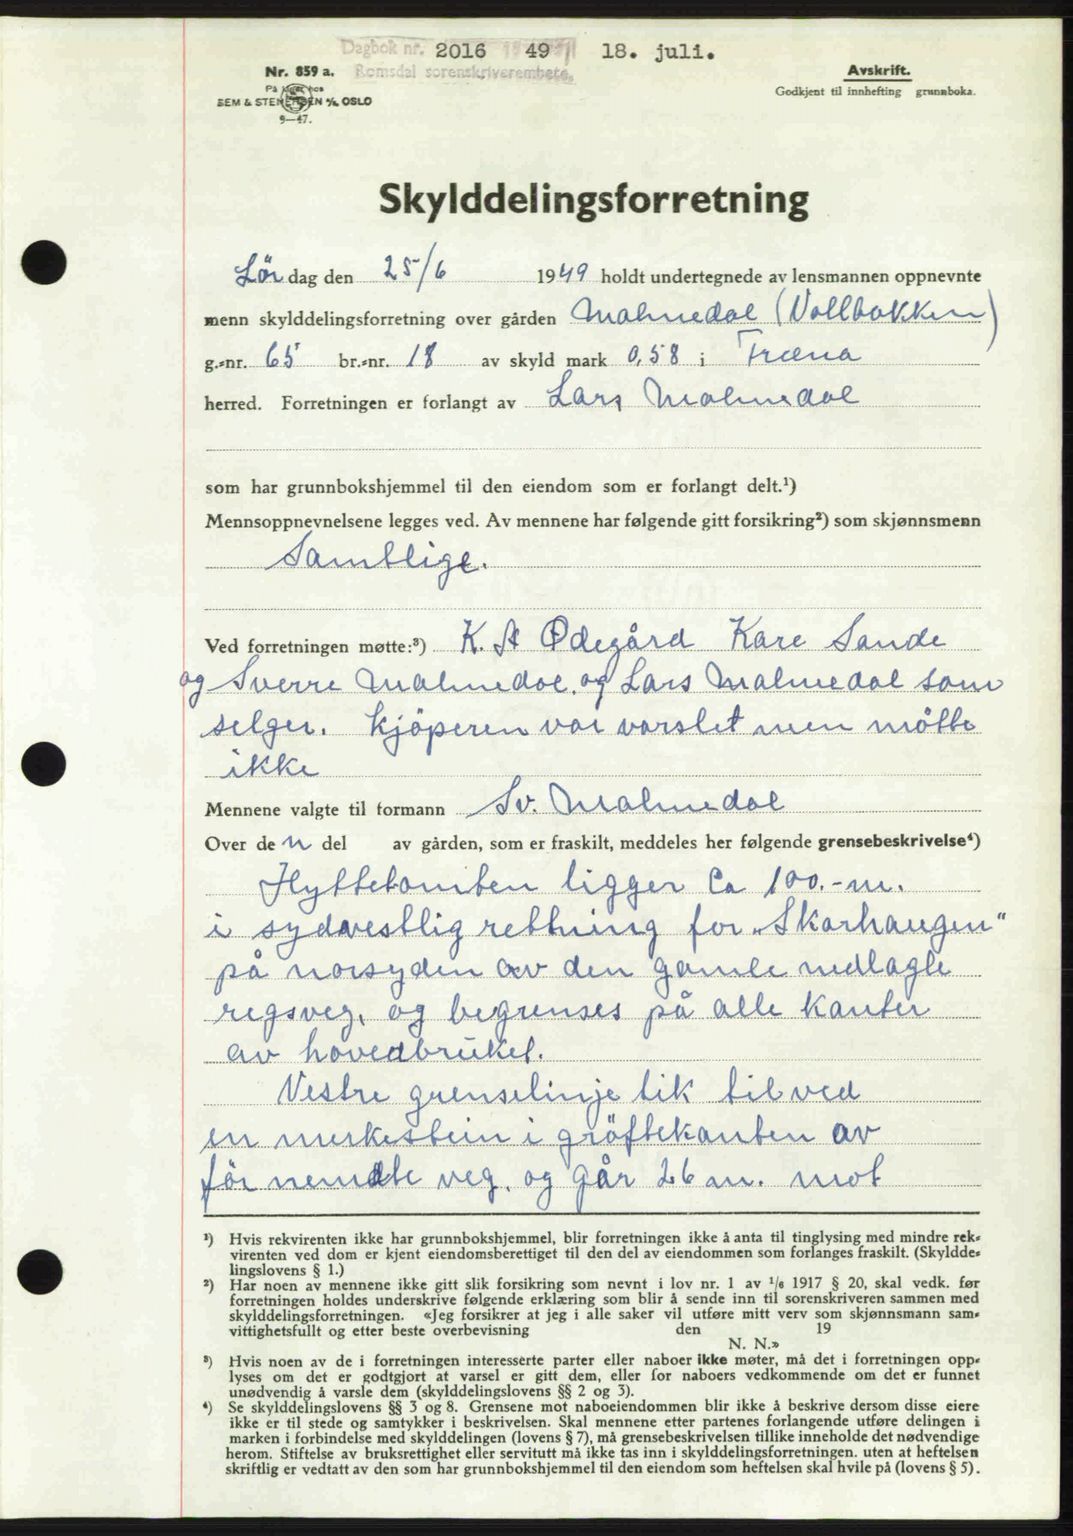 Dagbok nr. 2016 1949 18. juli.
Romsdal sorenskriverembete.
Nr. 859 a.
På lager hos
SEM & STENERSEN A/S, OSLO
9—47.
Avskrift.
Godkjent til innhefting grunnboka.
Skylddelingsforretning
Lör dag den 25/6 1949 holdt undertegnede av lensmannen oppnevnte
menn skylddelingsforretning over gården Malmedal (Vollbakken)
g.-nr. 65 br.-nr. 18 av skyld mark 0,58 i Fræna
herred. Forretningen er forlangt av Lars Malmedal
som har grunnbokshjemmel til den eiendom som er forlangt delt.¹)
Mennsoppnevnelsene legges ved. Av mennene har følgende gitt forsikring²) som skjønnsmenn
Samtlige.
Ved forretningen møtte:³) K. A Ødegård Kare Sande
og Sverre Malmedal. og Lars Malmedal som
selger. Kjöperen var varslet men mötte
ikke
Mennene valgte til formann Sv. Malmedal
Over de n del av gården, som er fraskilt, meddeles her følgende grensebeskrivelse⁴)
Hyttetomten ligger Ca 100.-m.
i sydvestlig rettning for „Skarhaugen“
på norsyden av den gamle nedlagte
regsveg, og begrenses på alle kanter
av hovedbruket.
Vestre grenselinje tik til ved
en merkestein i gröftekanten av
för nemdte veg, og går 26 m. mot
¹) Hvis rekvirenten ikke har grunnbokshjemmel, blir forretningen ikke å anta til tinglysing med mindre rek-
virenten ved dom er kjent eiendomsberettiget til den del av eiendommen som forlanges fraskilt. (Skyldde-
lingslovens § 1.)
²) Har noen av mennene ikke gitt slik forsikring som nevnt i lov nr. 1 av ¹/₆ 1917 § 20, skal vedk. før
forretningen holdes underskrive følgende erklæring som blir å sende inn til sorenskriveren sammen med
skylddelingsforretningen. «Jeg forsikrer at jeg i alle saker vil utføre mitt verv som skjønnsmann sam-
vittighetsfullt og etter beste overbevisning den 19
N. N.»
³) Hvis noen av de i forretningen interesserte parter eller naboer ikke møter, må det i forretningen opp-
lyses om det er godtgjort at varsel er gitt dem, eller for naboers vedkommende om det er funnet
unødvendig å varsle dem (skylddelingslovens §§ 2 og 3).
⁴) Se skylddelingslovens §§ 3 og 8. Grensene mot naboeiendommen blir ikke å beskrive dersom disse eiere
ikke er til stede og samtykker i beskrivelsen. Skal mennene etter partenes forlangende utføre delingen i
marken i forbindelse med skylddelingen (lovens § 7), må grensebeskrivelsen tillike inneholde det nødvendige
herom. Stiftelse av bruksrettighet eller servitutt må ikke tas inn i skylddelingsforretningen. uten at heftelsen
skriftlig er vedtatt av den som har grunnbokshjemmel til den eiendom som heftelsen skal hvile på (lovens § 5).